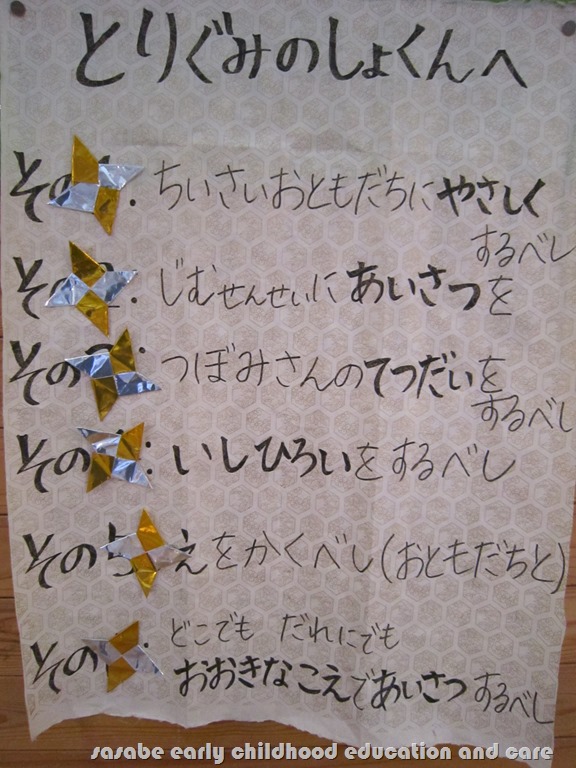 とりぐみのしょくんへ
その : ちいさいおともだちにやさしく
するべし
その : じむせんせいにあいさつを
その : つぼみさんのてつだいを
するべし
その : いしひろいをするべし
その えをかくべし(おともだちと)
その : どこでも だれにでも
おおきなこえであいさつするべし
sasabe early childhood education and care